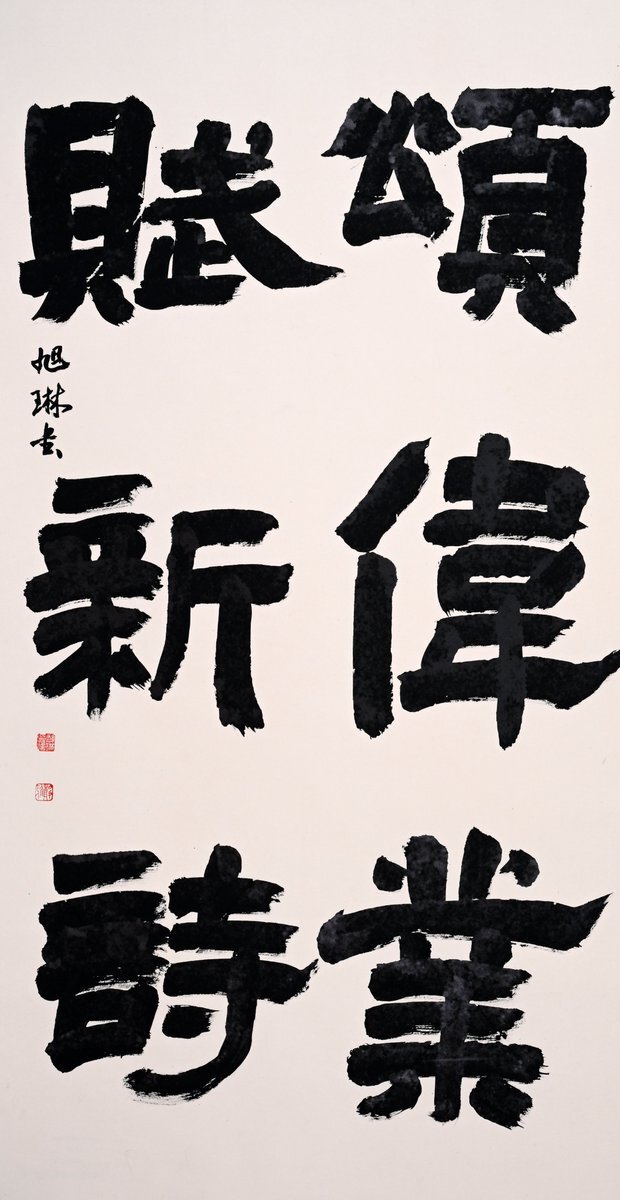 頌偉業
賦新詩
旭琳書